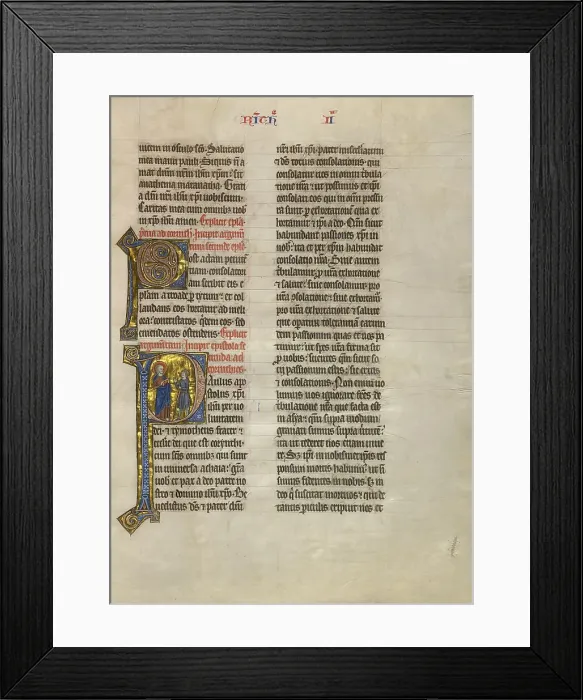 NICH II
uicem in osculo sco. Salutatio
mea manu pauli. Siquis n a
mat dnm nrm ihm xpm: sit
anathema maranatha. Gratia
dni nri ihu xpi uobiscum.
Caritas mea cum omnibz uob
in xpo ihu amen. Explicit epla
prima ad corinth. Incipit argum
tum secunde eple.
Post actam peniten
tiam consolatori
am scribit eis e
plam a troade p tytum: et col
laudans eos hortatur ad meli
ora: contristatos qdem eos sed
emendatos ostendens. Explicit
argumtum. Incipit epistola se
cunda ad
corinthios.
Paulus apo
stolus xpi
ihu per uo
luntatem
dei. et tymotheus frater
ecclesie dei que est corynthi
cum scis omnibz qui sunt
in uniuersa achaia: gra
uob et pax a deo patre no
stro et domino ihu xpo. Be
nedictus ds et pater dni
nri ihu xpi. pater misericordiarum
et ds totius consolationis. qui
consolatur nos in omni tribula
tione nra: ut possimus et ipi
consolari eos qui in omni pressu
ra sunt. p exhortationem qua ex
hortamur et ipi a deo. Qm sicut
habundant passiones xpi in
nob: ita et per xpm habundat
consolatio nra. Siue autem
tribulamur p ura exhortatione
et salute: siue consolamur pro
ura solatione: siue exhortam
pro ura exhortatione et salute
que operatur tolerantiam earum
dem passionum quas et nos pa
timur: ut spes nra firma sit
p uobis: scientes qm sicut so
cii passionum estis: sic eritis
et consolationis. Non enim uo
lumus uos ignorare fres de
tribulatione nra que facta est
in asya: qm supra modum
grauati sumus supra uirtute:
ita ut tederet nos etiam uiue
re. Sz ipi in nobismetipsis res
ponsum mortis habuim: ut n
simus fidentes in nobis. sz in
deo q suscitat mortuos. qui de
tantis piculis eripuit nos et